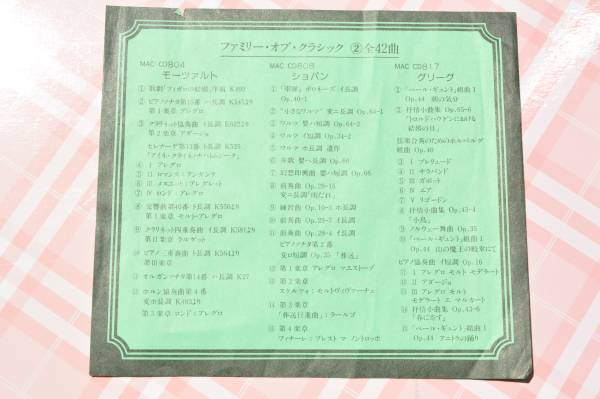 ファミリー・オブ・クラシック ②全42曲
MAC CD804
モーツァルト
① 歌劇「フィガロの結婚」序曲 K492
② ピアノソナタ第15番 ハ長調 K545より
第1楽章 アレグロ
③ クラリネット協奏曲 イ長調 K622より
第2楽章 アダージョ
セレナーデ第13番 ト長調 K525
「アイネ・クライネ・ナハトムジーク」
④ I アレグロ
⑤ II ロマンス:アンダンテ
⑥ III メヌエット:アレグレット
⑦ IV ロンド:アレグロ
⑧ 交響曲第40番 ト短調 K550より
第1楽章 モルト・アレグロ
⑨ クラリネット四重奏曲 イ長調 K581より
第2楽章 ラルゲット
⑩ ピアノ三重奏曲 ト長調 K564より
第III楽章
⑪ オルガンソナタ第14番 ハ長調 K27
⑫ ホルン協奏曲第4番
変ホ長調 K495より
第3楽章 ロンド:アレグロ
MAC CD808
ショパン
① 「軍隊」ポロネーズ イ長調
Op.40-1
② 「小さなワルツ」変ニ長調 Op.64-1
③ ワルツ 嬰ハ短調 Op.64-2
④ ワルツ イ短調 Op.34-2
⑤ ワルツ ホ長調 遺作
⑥ 舟歌 嬰ヘ長調 Op.60
⑦ 幻想即興曲 嬰ハ短調 Op.66
⑧ 前奏曲 Op.28-15
変ニ長調「雨だれ」
⑨ 練習曲 Op.10-3 ホ長調
⑩ 前奏曲 Op.28-7 イ長調
⑪ 前奏曲 Op.28-4 ホ短調
ピアノソナタ第2番
変ロ短調 Op.35 「葬送」
⑫ 第1楽章 アレグロ マエストーブ
⑬ 第2楽章
スケルツォ:モルトヴィヴァーチェ
⑭ 第3楽章
「葬送行進曲」:ラールゴ
⑮ 第4楽章
フィナーレ:プレスト マ ノントロッポ
MAC CD817
グリーグ
① 「ペール・ギュント」組曲 I
Op.44 朝の気分
② 抒情小曲集 Op.65-6
「トロルドハウゲンにおける
結婚の日」
弦楽合奏のためのホルベルグ
組曲 Op.40
③ I プレリュード
④ II サラバンド
⑤ III ガボット
⑥ IV エア
⑦ V リゴードン
⑧ 抒情小曲集 Op.43-4
「小鳥」
⑨ ノルウェー舞曲 Op.35
⑩ 「ペール・ギュント」組曲 I
Op.44 山の魔王の殿堂にて
ピアノ協奏曲 イ短調 Op.16
⑪ I アレグロ モルト モデラート
⑫ II アダージョ
⑬ III アレグロ モルト
モデラート エ マルカート
⑭ 抒情小曲集 Op.43-6
「春に寄す」
⑮ 「ペール・ギュント」組曲 I
Op.44 アニトラの踊り